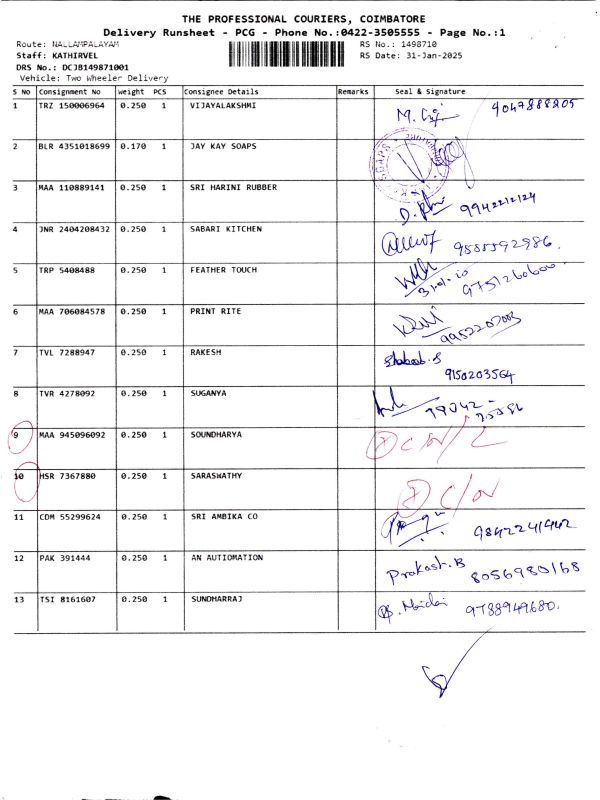 THE PROFESSIONAL COURIERS, COIMBATORE
Delivery Runsheet - PCG - Phone No.:0422-3505555 - Page No.:1
Route: NALLAMPALAYAM RS No.: 1498710
Staff: KATHIRVEL RS Date: 31-Jan-2025
DRS No.: DCJB149871001
Vehicle: Two Wheeler Delivery
S No Consignment No Weight PCS Consignee Details Remarks Seal & Signature
1 TRZ 150006964 0.250 1 VIJAYALAKSHMI
2 BLR 4351018699 0.170 1 JAY KAY SOAPS
3 MAA 110889141 0.250 1 SRI HARINI RUBBER 9942212124
4 JNR 2404208432 0.250 1 SABARI KITCHEN
5 TRP 5408488 0.250 1 FEATHER TOUCH
6 MAA 706084578 0.250 1 PRINT RITE
7 TVL 7288947 0.250 1 RAKESH
9150203564
8 TVR 4278092 0.250 1 SUGANYA
9 MAA 945096092 0.250 1 SOUNDHARYA
10 HSR 7367880 0.250 1 SARASWATHY
11 CDM 55299624 0.250 1 SRI AMBIKA CO 9842241442
12 PAK 391444 0.250 1 AN AUTIOMATION Prakash.B 8056980168
13 TSI 8161607 0.250 1 SUNDHARRAJ 9788949680.